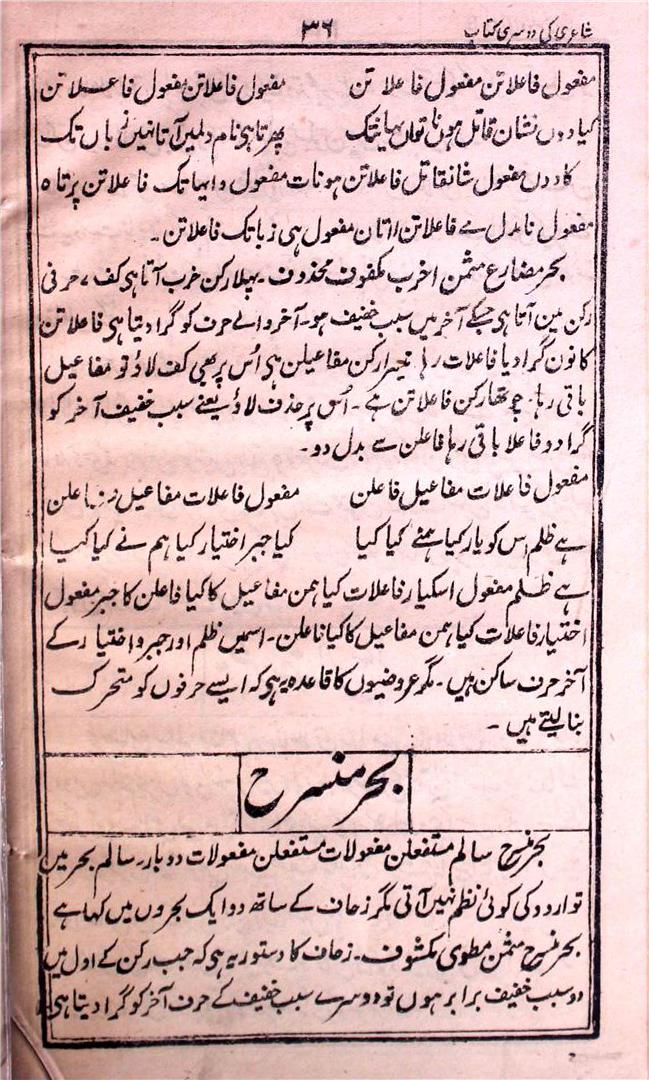 شاعری کی دوسری کتاب
۳۶
مفعول فاعلاتن مفعول فاعلاتن مفعول فاعلاتن مفعول فاعلاتن
کیا دوں نشان قاتل ہوں ناتواں یہانتک پھرتا ہی نام دلمیں آتا نہیں زباں تک
کا دوں مفعول شانقاتل فاعلاتن ہونات مفعول وایہاتک فاعلاتن پرتاہ
مفعول نامدل مے فاعلاتن ااتان مفعول ہی زباتک فاعلاتن۔
بحر مضارع مثمن اخرب مکفوف محذوف۔ پہلا رکن خرب آتا ہی کف ۷ حرفی
رکن مین آتا ہی جسکے آخر میں سبب خفیف ہو۔ آخر والے حرف کو گرا دیتا ہی فاعلاتن
کا نون گرا دیا فاعلات رہا تیسرا رکن مفاعیلن ہی اُس پر بھی کف لاؤ تو مفاعیل
باقی رہا۔ چوتھا رکن فاعلاتن ہے۔ اُس پر حذف لاؤ یعنے سبب خفیف آخر کو
گرا دو فاعلا باقی رہا فاعلن سے بدل دو۔
مفعول فاعلات مفاعیل فاعلن مفعول فاعلات مفاعیل فاعلن
ہے ظلم اس کو یار کیا ہمنے کیا کیا کیا جبر اختیار کیا ہم نے کیا کیا
ہے ظلم مفعول اسکیار فاعلات کیا ہمن مفاعیل کا کیا فاعلن کا جبر مفعول
اختیار فاعلات کیا ہمن مفاعیل کا کیا فاعلن۔ اسمیں ظلم اور جبر و اختیار کے
آخر حرف ساکن ہیں۔ مگر عروضیوں کا قاعدہ یہ ہی کہ ایسے حرفوں کو متحرک
بنا لیتے ہیں۔
بحر منسرح
بحر منسرح سالم مستفعلن مفعولات مستفعلن مفعولات دوبار۔ سالم بحر میں
تو اردو کی کوئی نظم نہیں آتی مگر زحاف کے ساتھ دو ایک بحروں میں کہا ہے
بحر منسرح مثمن مطوی مکشوف۔ زحاف کا دستور یہ ہی کہ جب رکن کے اول میں
دو سبب خفیف برابر ہوں تو دوسرے سبب خفیف کے حرف آخر کو گرا دیتا ہی